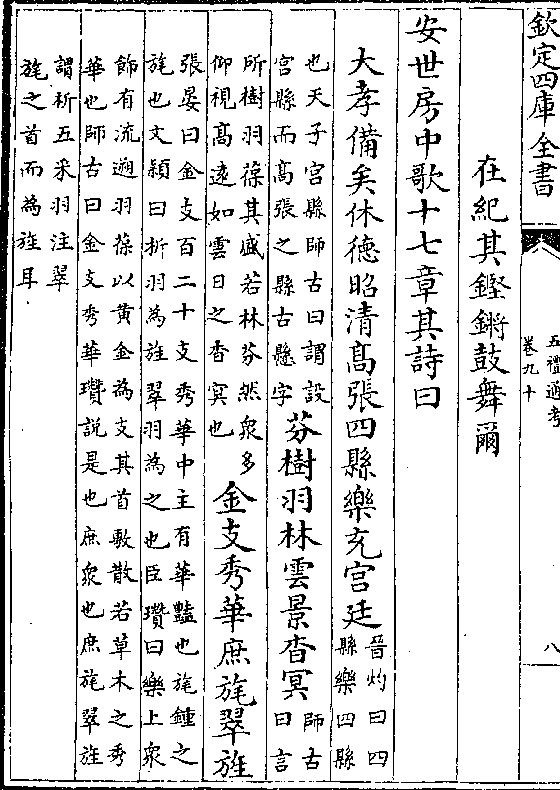 欽定四庫全書
五禮通考
卷九十
八
在紀其鏗鏘鼓舞爾
安世房中歌十七章其詩曰
大孝備矣休德昭清髙張四縣樂充宫廷
晉灼曰四
縣樂四縣
也天子宫縣師古曰謂設
宫縣而髙張之縣古懸字
芬樹羽林雲景杳冥
師古
曰言
所樹羽葆其盛若林芬然衆多
仰視髙逺如雲日之杳冥也
金支秀華庶旄翠旌
張晏曰金支百二十支秀華中主有華豔也旄鍾之
旄也文頴曰折羽為旌翠羽為之也臣瓚曰樂上衆
飾有流遡羽葆以黄金為支其首敷散若草木之秀
華也師古曰金支秀華瓚説是也庶衆也庶旄翠旌
謂析五采羽注翠
旄之首而為旌耳